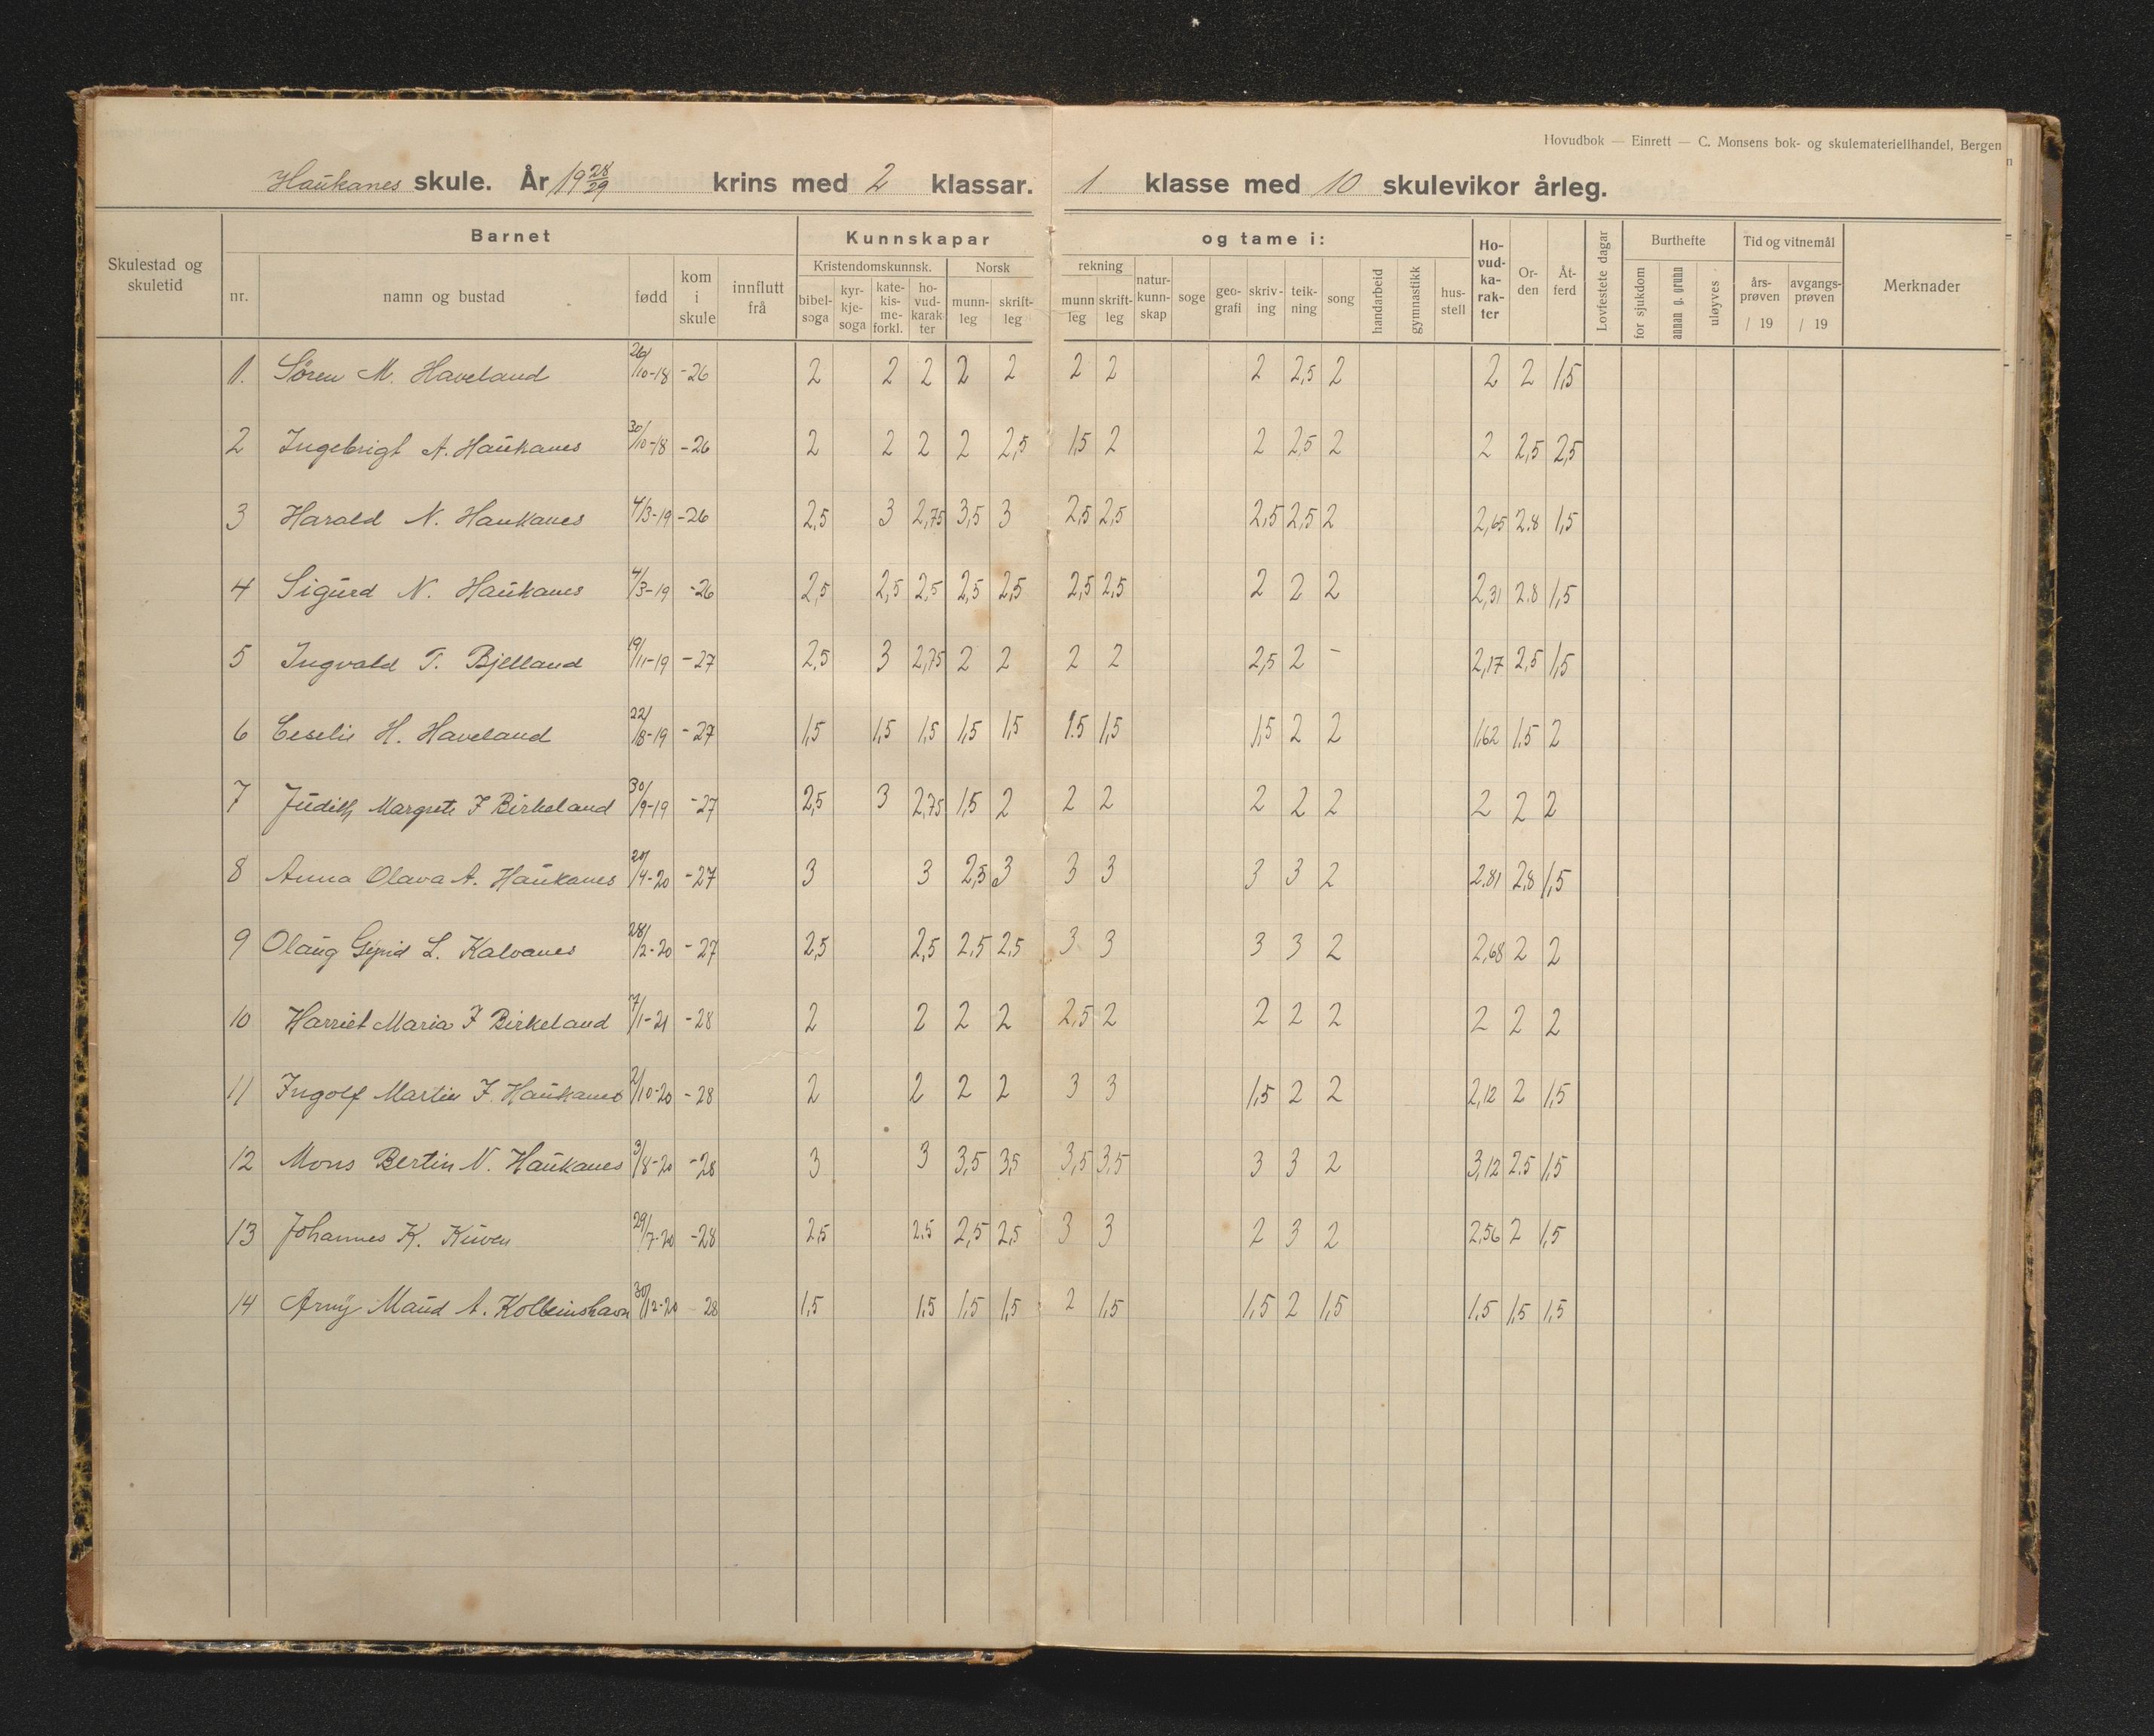 Hovudbok — Einrett — C. Monsens bok- og skulemateriellhandel, Bergen
Haukanes skule. År 19 28/29 krins med 2 klassar. 1 klasse med 10 skulevikor årleg.
Skulestad og skuletid
Barnet
Kunnskapar og tame i:
Hovudkarakter
Orden
Åtferd
Lovfestete dagar
Burthefte
Tid og vitnemål
Merknader
nr. namn og bustad født kom i skule innflutt frå
Kristendomskunnsk. Norsk rekning
bibelsoga kyrkjesoga katekismeforkl. hovudkarakter munnleg skriftleg munnleg skriftleg naturkunnskap soge geografi skriving teikning song handarbeid gymnastikk husstell
for sjukdom annan g. grunn uløyves årsprøven / 19 avgangsprøven / 19
1. Søren M. Haveland 26/10-18 -26 2 2 2 2 2 2 2 2 2,5 2 2 2 1,5
2 Ingebrigt A. Haukanes 30/10-18 -26 2 2 2 2 2,5 1,5 2 2 2,5 2 2 2,5 2,5
3 Harald N. Haukanes 4/3-19 -26 2,5 3 2,75 3,5 3 2,5 2,5 2,5 2,5 2 2,65 2.8 1,5
4 Sigurd N. Haukanes 4/3-19 -26 2,5 2,5 2,5 2,5 2,5 2,5 2,5 2 2 2 2,31 2.8 1,5
5 Ingvald T. Bjelland 19/11-19 -27 2,5 3 2,75 2 2 2 2 2,5 2 - 2,17 2,5 1,5
6 Ceselie H. Haveland 22/8-19 -27 1,5 1,5 1,5 1,5 1,5 1.5 1,5 1,5 2 2 1,62 1,5 2
7 Judith Margrete J Birkeland 30/9-19 -27 2,5 3 2,75 1,5 2 2 2 2 2 2 2 2 2
8 Anna Olava A. Haukanes 20/4-20 -27 3 3 2,5 3 3 3 3 3 2 2.81 2,8 1,5
9 Olaug L. Kalvanes 28/2-20 -27 2,5 2,5 2,5 2,5 3 3 3 3 2 2,68 2 2
10 Harriet Maria J Birkeland 7/1-21 -28 2 2 2 2 2,5 2 2 2 2 2 2 2
11 Ingolf Martin J. Haukanes 2/10-20 -28 2 2 2 2 3 3 1,5 2 2 2,12 2 1,5
12 Mons Bertin N. Haukanes 3/8-20 -28 3 3 3,5 3,5 3,5 3,5 3 3 2 3,12 2.5 1,5
13 Johannes K. Kuven 29/7-20 -28 2,5 2.5 2,5 2,5 3 3 2 3 2 2,56 2 1,5
14 Arny Maud A. Kolbeinshavn 30/12-20 28 1,5 1,5 1,5 1,5 2 1,5 1,5 2 1,5 1,5 1,5 1,5